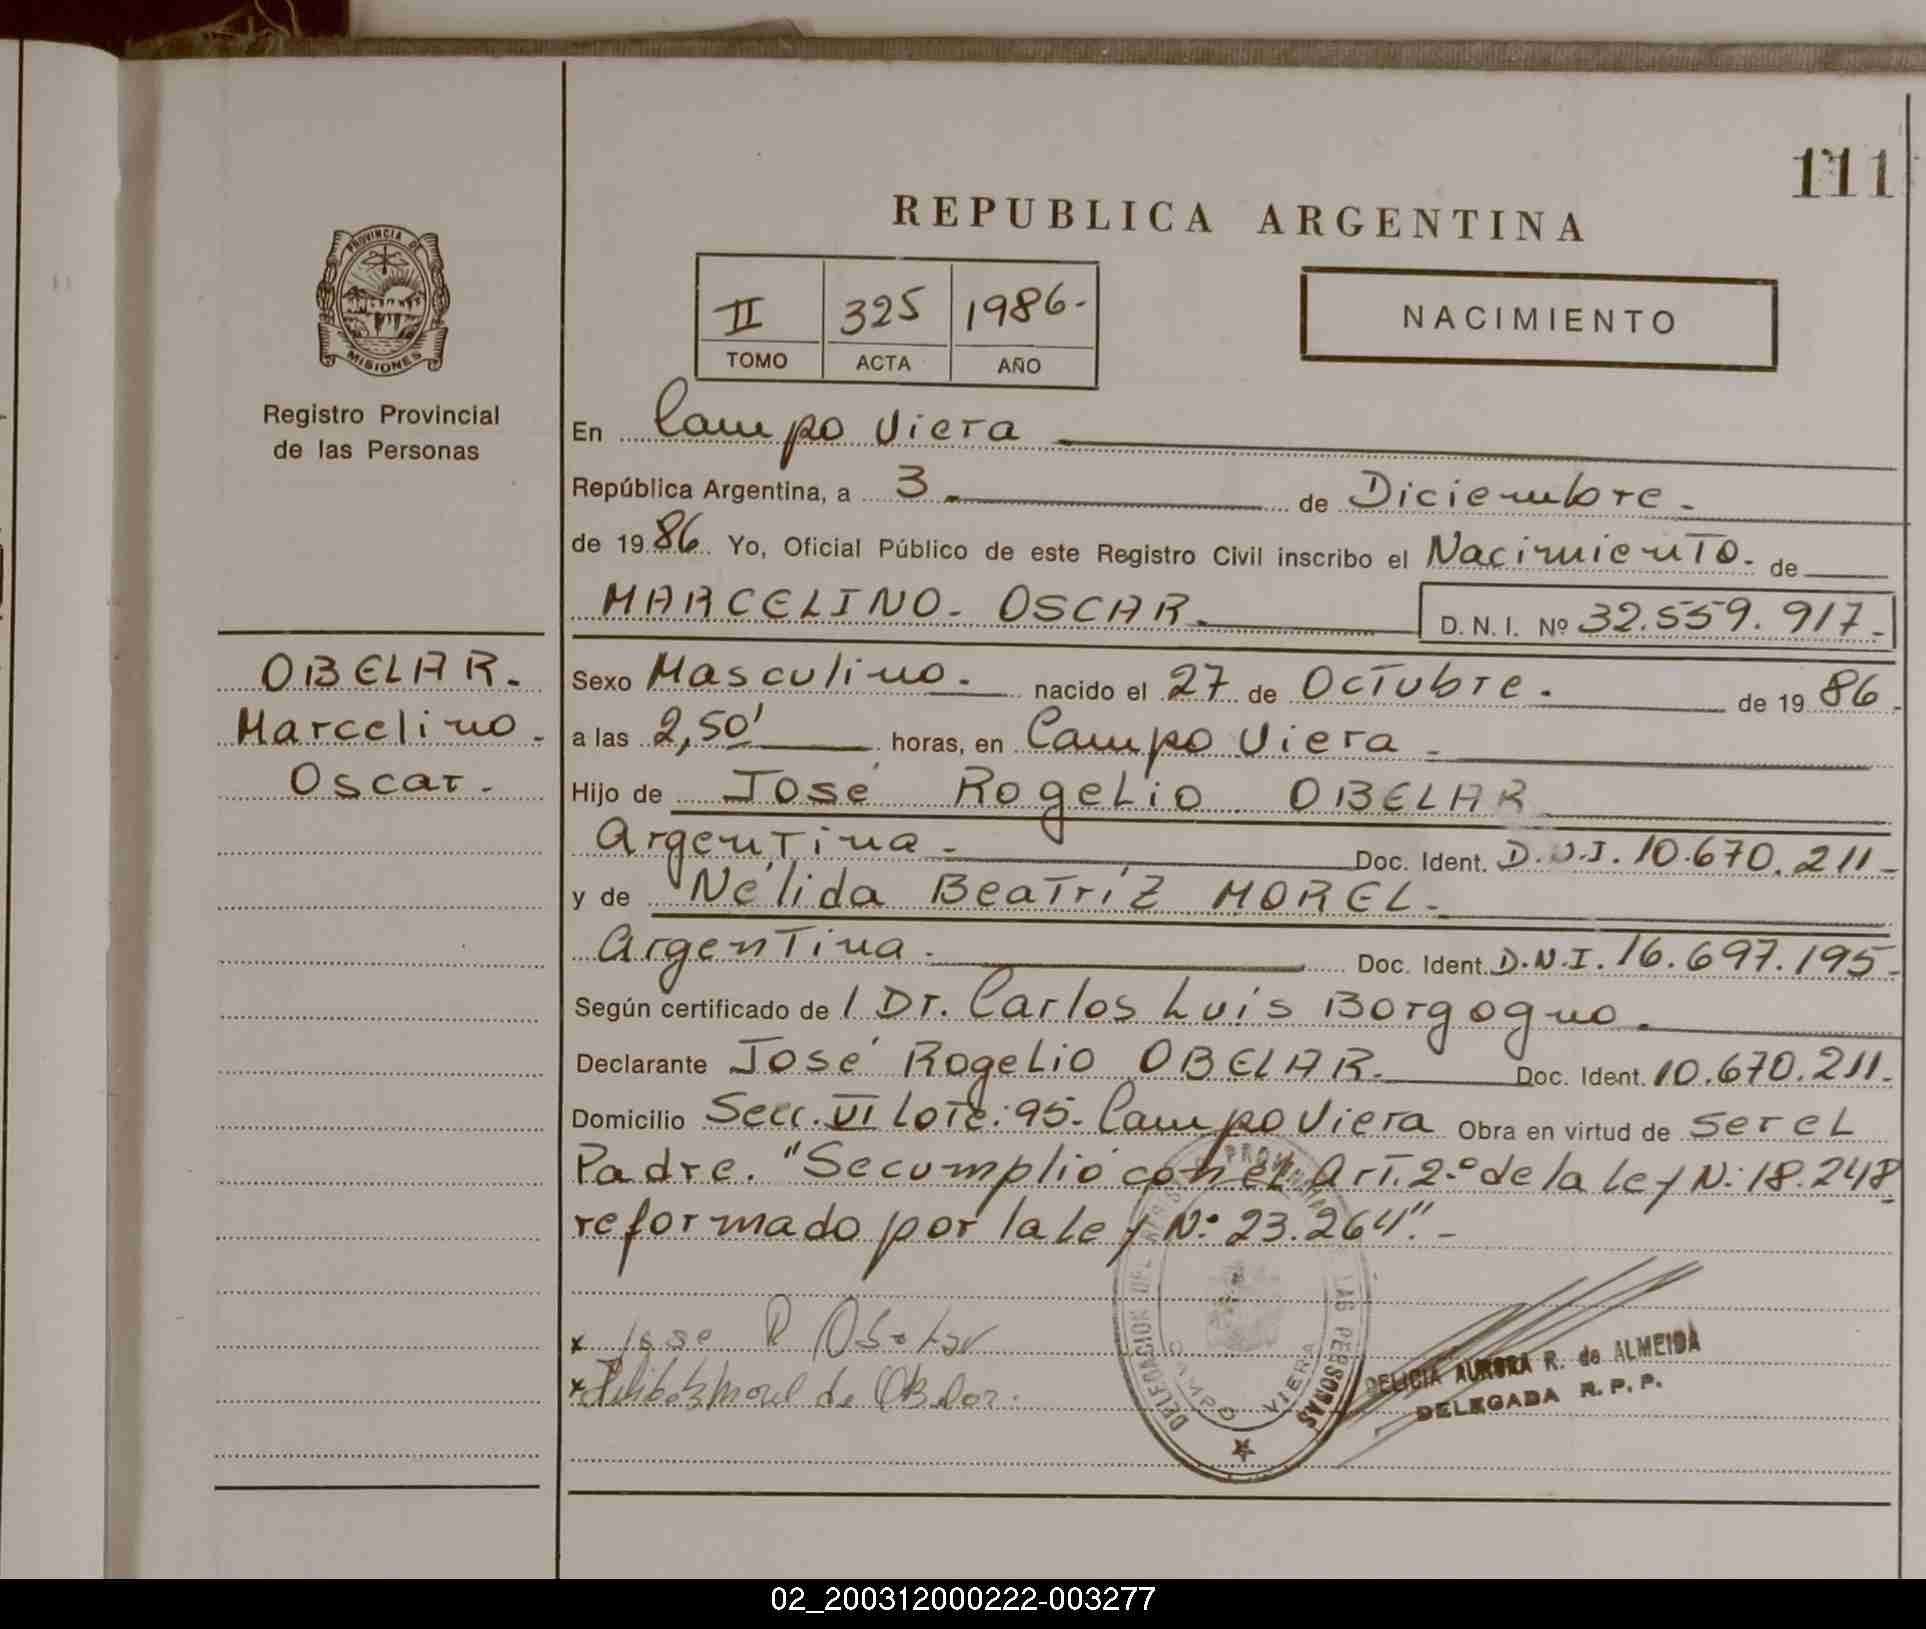 111
REPUBLICA ARGENTINA
PROVINCIA DE
MISIONES
Registro Provincial
de las Personas
II 325 1986.-
TOMO ACTA AÑO
NACIMIENTO
En Campo Viera
República Argentina, a 3 de Diciembre.
de 1986. Yo, Oficial Público de este Registro Civil inscribo el Nacimiento. de
MARCELINO. OSCAR. D. N. I. Nº 32.559.917.-
OBELAR.
Marcelino.
Oscar.
Sexo Masculino. nacido el 27 de Octubre. de 1986.
a las 2,50' horas, en Campo Viera.
Hijo de José Rogelio OBELAR
Argentina. Doc. Ident. D.N.I. 10.670.211.-
y de Nélida Beatríz MOREL.
Argentina. Doc. Ident. D.N.I. 16.697.195.-
Según certificado de l Dr. Carlos Luis Borgogno.
Declarante José Rogelio OBELAR. Doc. Ident. 10.670.211.-
Domicilio Secc. VI Lote: 95.- Campo Viera Obra en virtud de ser el
Padre. "Se cumplió con el Art. 2º de la Ley Nº 18.248
reformado por la Ley Nº 23.264".-
x Jose R Obelar
x Morel de Obelar.
DELEGACION DEL REGISTRO PROVINCIAL DE LAS PERSONAS
CAMPO VIERA
DELICIA AURORA R. de ALMEIDA
DELEGADA R. P. P.
02_200312000222-003277